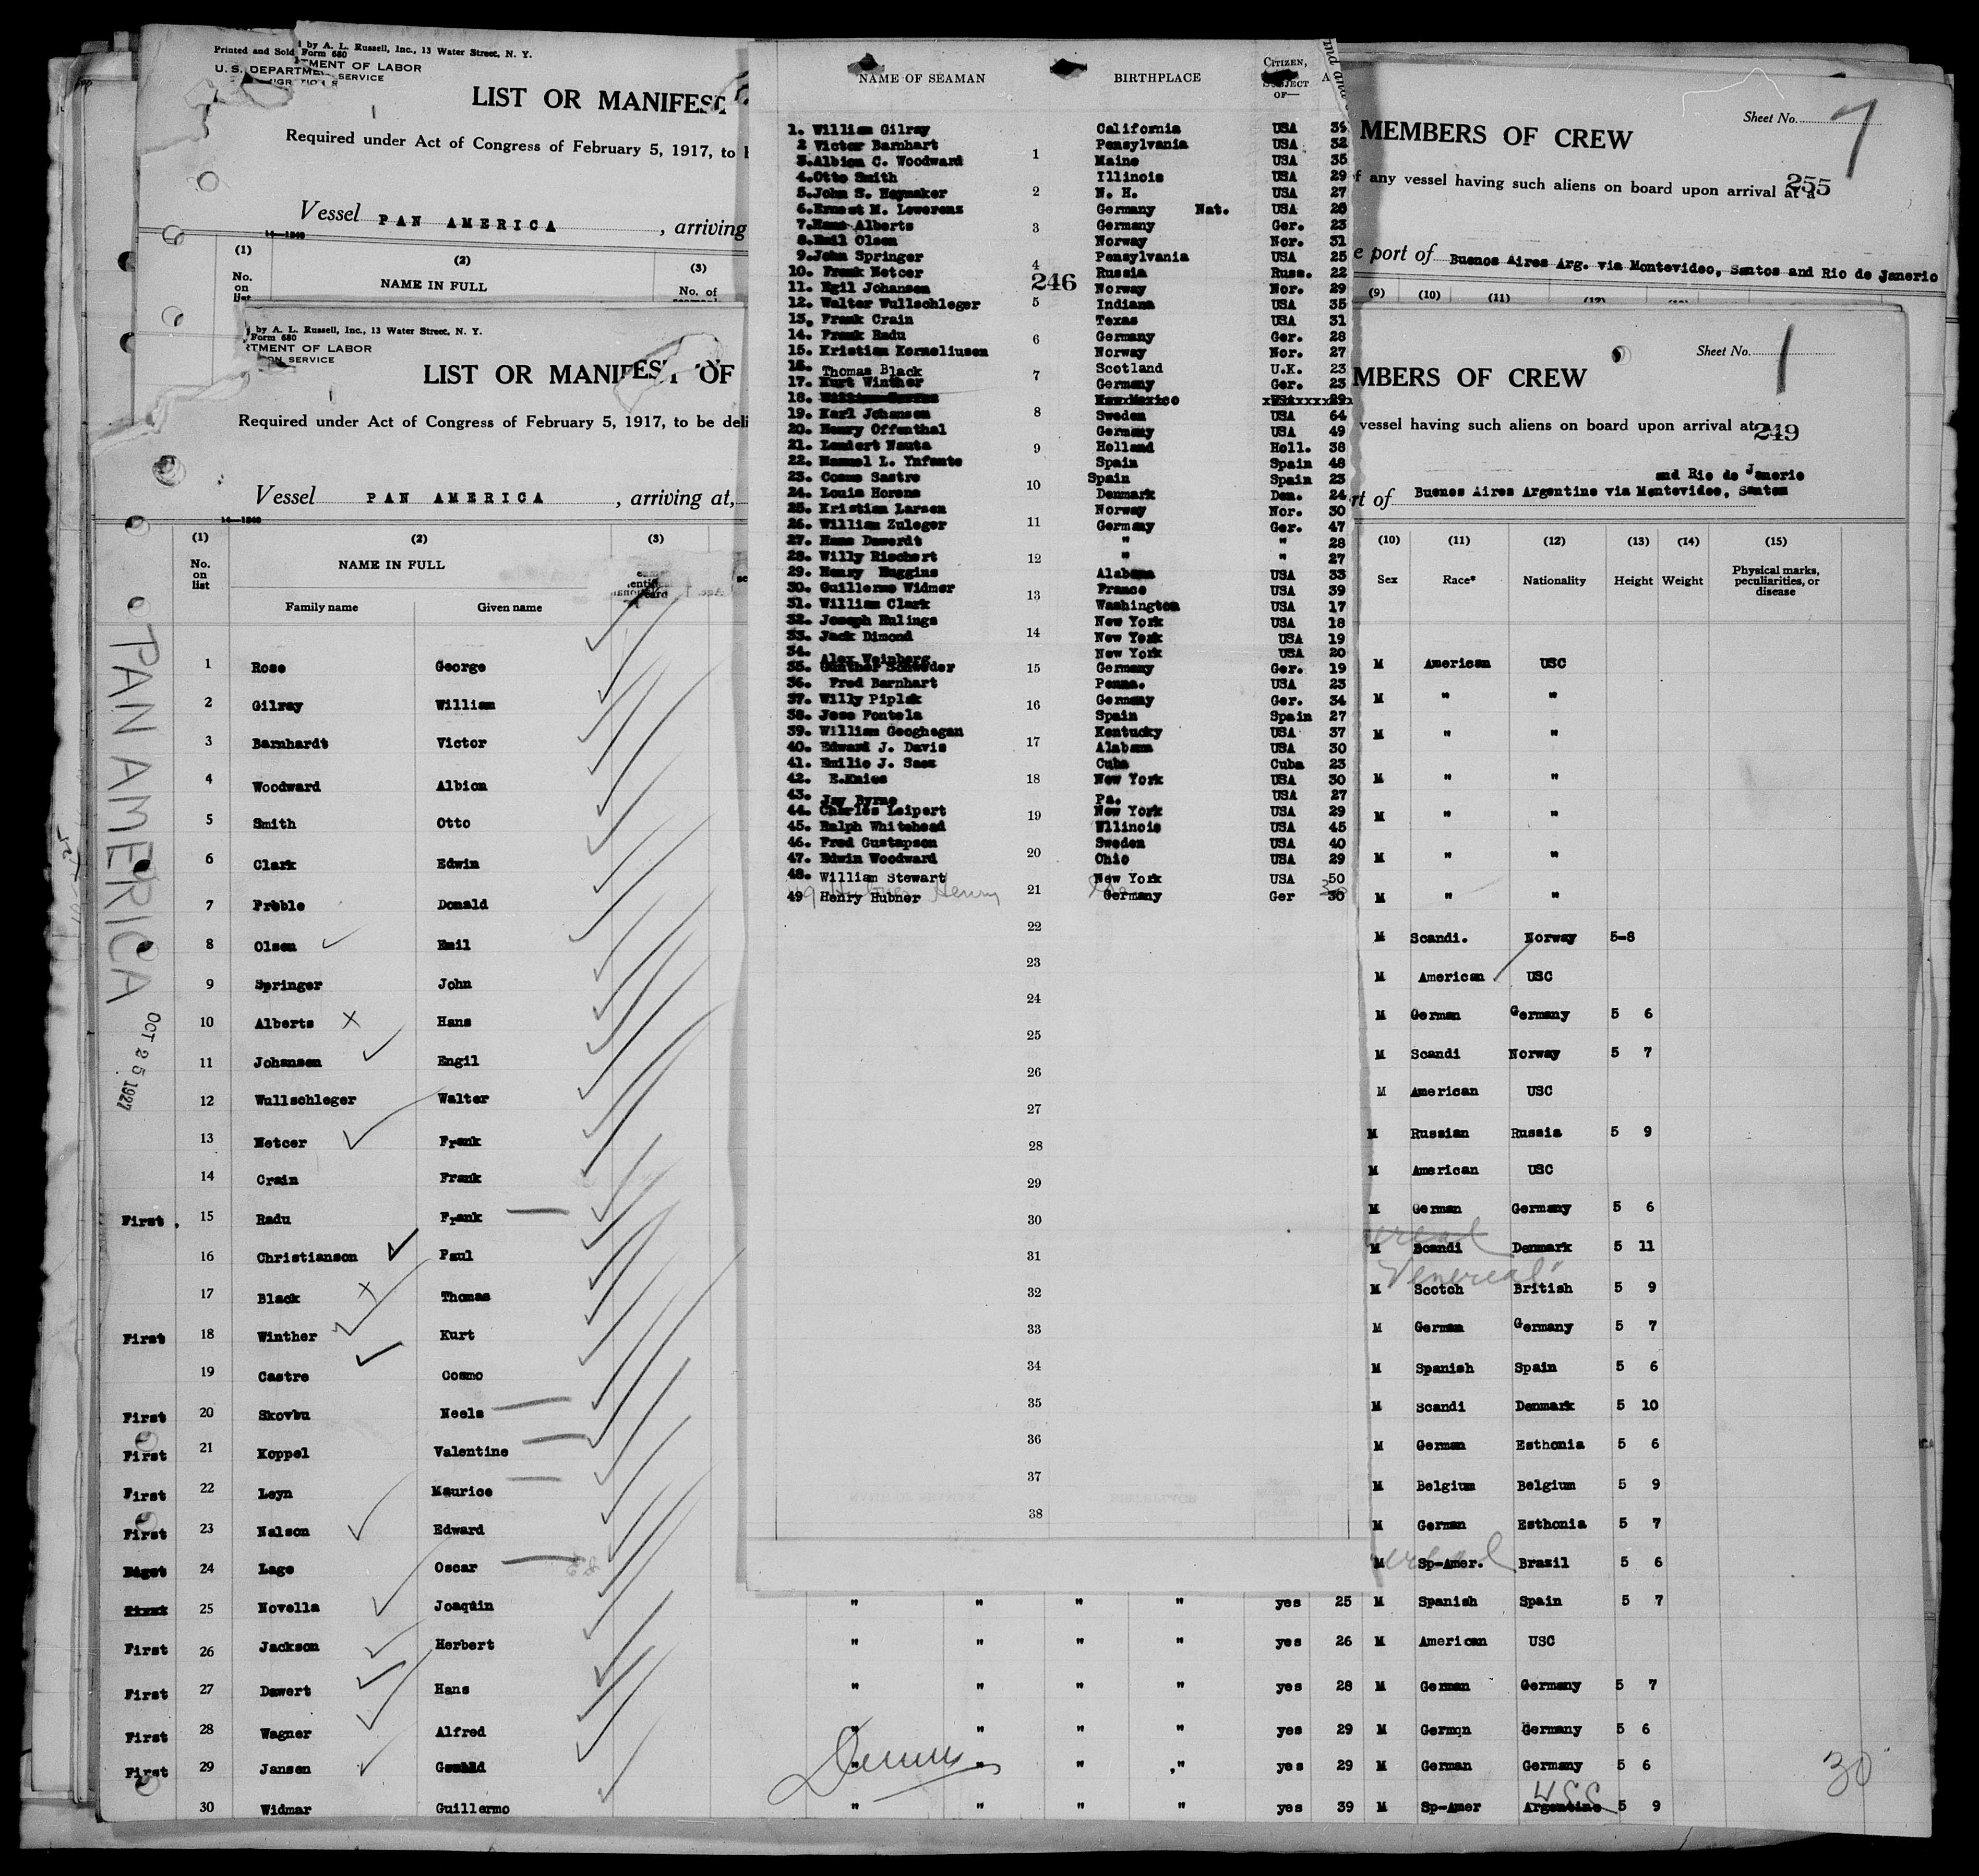 Printed and Sold by A. L. Russell, Inc., 13 Water Street, N. Y.
Form 680
U. S. DEPARTMENT OF LABOR
SERVICE
LIST OR MANIFEST
Required under Act of Congress of February 5, 1917, to
Vessel PAN AMERICA, arriving
14—1240
(1) (2) (3)
No. on list NAME IN FULL No. of
MEMBERS OF CREW
Sheet No. 7
f any vessel having such aliens on board upon arrival at a
255
e port of Buenos Aires Arg. via Montevideo, Santos and Rio de Janerio
(9) (10) (11) (12)
by A. L. Russell, Inc., 13 Water Street, N. Y.
Form 680
RTMENT OF LABOR
ON SERVICE
LIST OR MANIFEST OF
MBERS OF CREW
Sheet No. 1
Required under Act of Congress of February 5, 1917, to be deli
vessel having such aliens on board upon arrival at
249
Vessel PAN AMERICA, arriving at,
and Rio de Janerio
rt of Buenos Aires Argentine via Montevideo, Santos
14—1240
(1) (2) (3)
No. on list NAME IN FULL
Family name Given name
(10) (11) (12) (13) (14) (15)
Sex Race* Nationality Height Weight Physical marks, peculiarities, or disease
PAN AMERICA
OCT 25 1927
1 Rose George M American USC
2 Gilray William M " "
3 Barnhardt Victor M " "
4 Woodward Albion M " "
5 Smith Otto M " "
6 Clark Edwin M " "
7 Preble Donald M " "
8 Olsen Emil M Scandi. Norway 5-8
9 Springer John M American USC
10 Alberts Hans M German Germany 5 6
11 Johansen Engil M Scandi Norway 5 7
12 Wullschleger Walter M American USC
13 Netcer Frank M Russian Russia 5 9
14 Crain Frank M American USC
First 15 Radu Frank M German Germany 5 6
16 Christianson Paul M Scandi Denmark 5 11
Venereal
17 Black Thomas M Scotch British 5 9
First 18 Winther Kurt M German Germany 5 7
19 Castre Cosmo M Spanish Spain 5 6
First 20 Skovbu Neels M Scandi Denmark 5 10
First 21 Koppel Valentine M German Esthonia 5 6
First 22 Leyn Maurice M Belgium Belgium 5 9
First 23 Nalson Edward M German Esthonia 5 7
24 Lage Oscar M Sp-Amer. Brazil 5 6
25 Novella Joaquin " " " " yes 25 M Spanish Spain 5 7
First 26 Jackson Herbert " " " " yes 26 M American USC
First 27 Dawert Hans " " " " yes 28 M German Germany 5 7
First 28 Wagner Alfred " " " " yes 29 M German Germany 5 6
First 29 Jansen " " " " yes 29 M German Germany 5 6
30
USC
30 Widmar Guillermo " " " " yes 39 M Sp-Amer Argentine 5 9
NAME OF SEAMAN BIRTHPLACE CITIZEN, SUBJECT OF— A
1. William Gilray California USA
2 Victor Barnhart Pensylvania USA 32
3. Albion C. Woodward Maine USA 35
4. Otto Smith Illinois USA 29
5. John S. Haymaker N. H. USA 27
6. Ernest M. Lowerenz Germany Nat. USA 26
7. Hans Alberts Germany Ger. 23
8. Emil Olsen Norway Nor. 31
9. John Springer Pensylvania USA 25
10. Frank Netcer Russia Russ. 22
246
11. Egil Johansen Norway Nor. 29
12. Walter Wullschleger Indiana USA 35
13. Frank Crain Texas USA 31
14. Frank Radu Germany Ger. 28
15. Kristian Korneliusen Norway Nor. 27
16. Thomas Black Scotland U.K. 23
17. Kurt Winther Germany Ger. 23
18. New Mexico 29
19. Karl Johansen Sweden USA 64
20. Henry Offenthal Germany USA 49
21. Lendert Nauta Holland Holl. 38
22. Manuel L. Ynfante Spain Spain 48
23. Cosmo Sastre Spain Spain 23
24. Louis Horens Denmark Den. 24
25. Kristian Larsen Norway Nor. 30
26. William Zuleger Germany Ger. 47
27. Hans Dawerdt " " 28
28. Willy Rischert " " 27
29. Henry Huggins Alabama USA 33
30. Guillermo Widmer France USA 39
31. William Clark Washington USA 17
32. Joseph Hulings New York USA 18
33. Jack Dimond New York USA 19
34. Alex Weinberg New York USA 20
35. Gunther Schweder Germany Ger. 19
36. Fred Barnhart Penna. USA 23
37. Willy Piplak Germany Ger. 34
38. Jose Fontela Spain Spain 27
39. William Geoghegan Kentucky USA 37
40. Edward J. Davis Alabama USA 30
41. Emilio J. Saez Cuba Cuba 23
42. E. Knies New York USA 30
43. Jay Byrne Pa. USA 27
44. Charles Leipert New York USA 29
45. Ralph Whitehead Wllinois USA 45
46. Fred Gustapson Sweden USA 40
47. Edwin Woodward Ohio USA 29
48. William Stewart New York USA 50
49 Henry Hubner Germany Ger 30
1
2
3
4
5
6
7
8
9
10
11
12
13
14
15
16
17
18
19
20
21
22
23
24
25
26
27
28
29
30
31
32
33
34
35
36
37
38